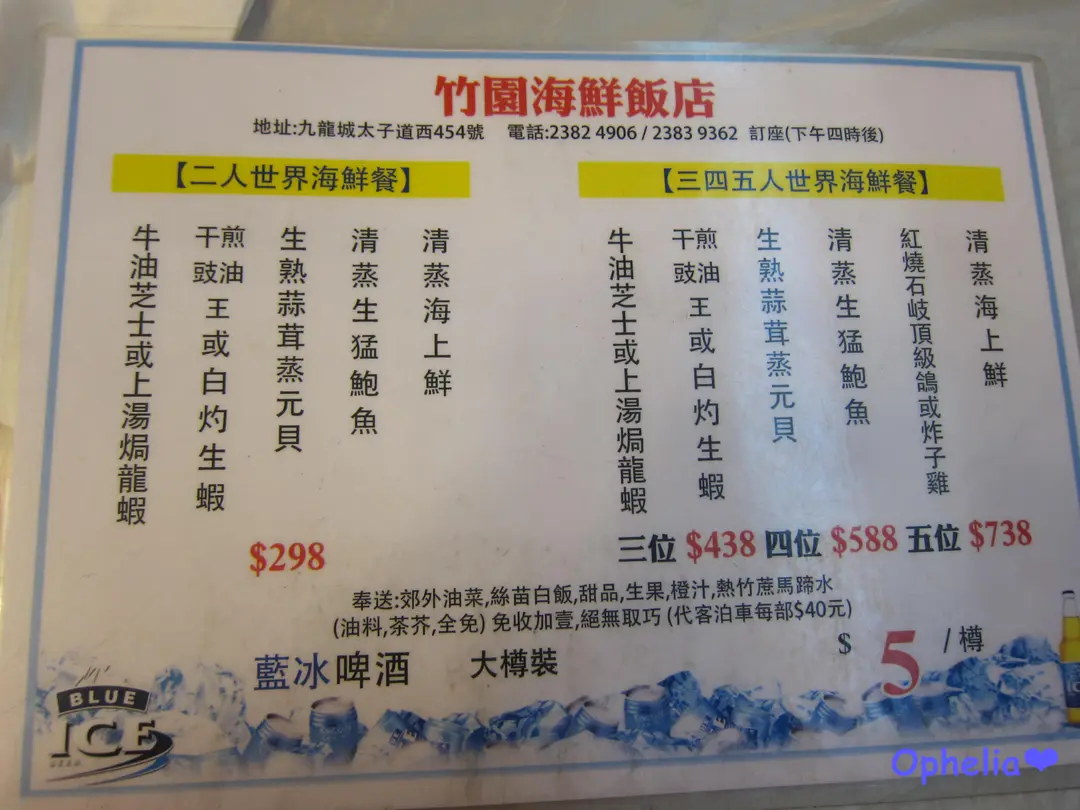 竹園海鮮飯店
地址:九龍城太子道西454號 電話:2382 4906 / 2383 9362 訂座(下午四時後)
【二人世界海鮮餐】
清蒸海上鮮
清蒸生猛鮑魚
生熟蒜茸蒸元貝
干煎豉油王或白灼生蝦
牛油芝士或上湯焗龍蝦
$298
【三四五人世界海鮮餐】
清蒸海上鮮
紅燒石岐頂級鴿或炸子雞
清蒸生猛鮑魚
生熟蒜茸蒸元貝
干煎豉油王或白灼生蝦
牛油芝士或上湯焗龍蝦
三位 $438 四位 $588 五位 $738
奉送:郊外油菜,絲苗白飯,甜品,生果,橙汁,熱竹蔗馬蹄水
(油料,茶芥,全免) 免收加壹,絕無取巧 (代客泊車每部$40元)
藍冰啤酒 大樽裝 $ 5 / 樽
BLUE
ICE
Ophelia❤